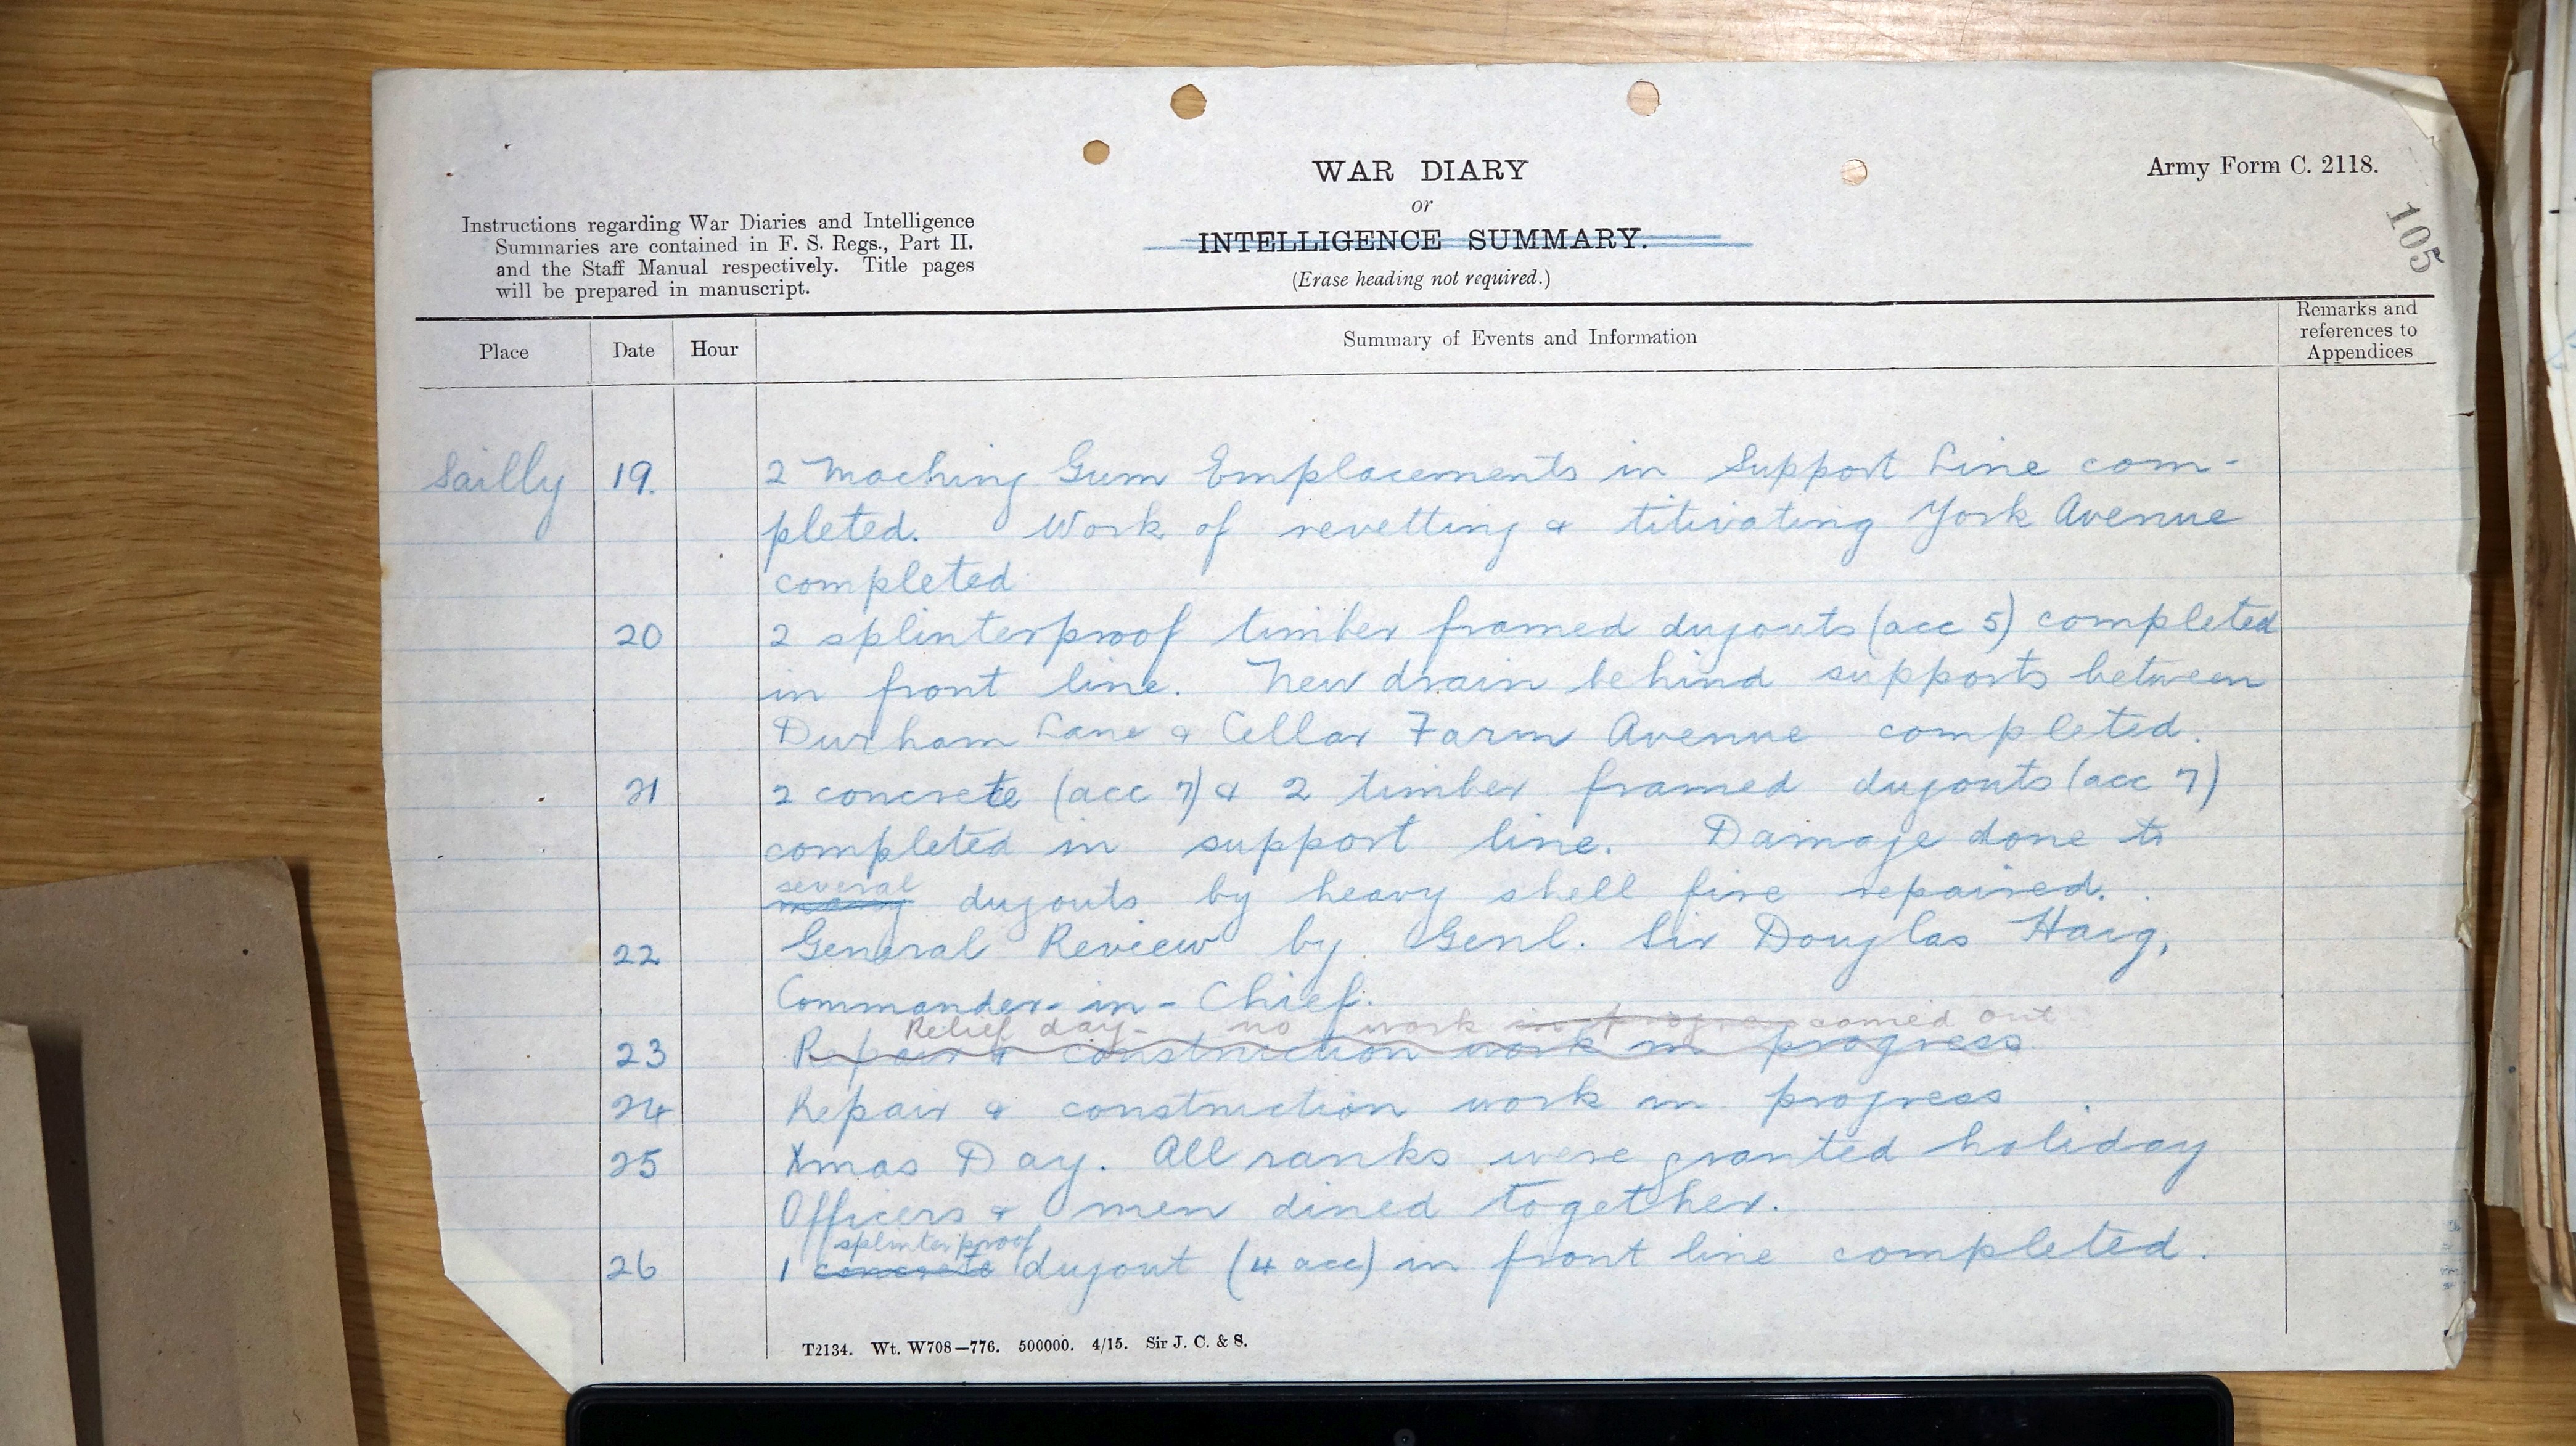 WAR DIARY
or
INTELLIGENCE SUMMARY.
(Erase heading not required.)
Army Form C. 2118.
105
Instructions regarding War Diaries and Intelligence
Summaries are contained in F. S. Regs., Part II.
and the Staff Manual respectively. Title pages
will be prepared in manuscript.
Place Date Hour Summary of Events and Information Remarks and
references to
Appendices
Sailly 19. 2 Maching Gum Emplacements in Support Line com-
pleted. Work of revetting & titivating York Avenue
completed
20 2 splinterproof timber framed dugouts (acc 5) completed
in front line. New drain behind supports between
Durham Lane & Cellar Farm Avenue completed.
21 2 concrete (acc 7) & 2 timber framed dugouts (acc 7)
completed in support line. Damage done to
several
many dugouts by heavy shell fire repaired.
22 General Review by Genl. Sir Douglas Haig,
Commander-in-Chief.
Relief day - no work in progress carried out
23 Repair & construction work in progress
24 Repair & construction work in progress
25 Xmas Day. All ranks were granted holiday
Officers & men dined together.
splinterproof
26 1 concrete dugout (4 acc) in front line completed.
T2134. Wt. W708—776. 500000. 4/15. Sir J. C. & S.